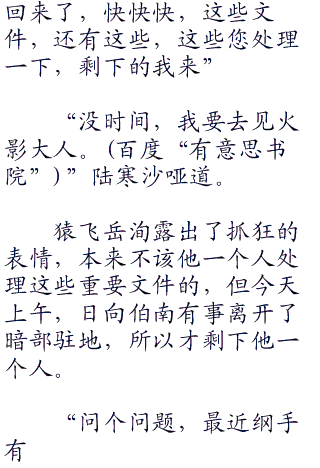 回来了，快快快，这些文
件，还有这些，这些您处理
一下，剩下的我来”
“没时间，我要去见火
影大人。(百度“有意思书
院”)”陆寒沙哑道。
猿飞岳洵露出了抓狂的
表情，本来不该他一个人处
理这些重要文件的，但今天
上午，日向伯南有事离开了
暗部驻地，所以才剩下他一
个人。
“问个问题，最近纲手
有